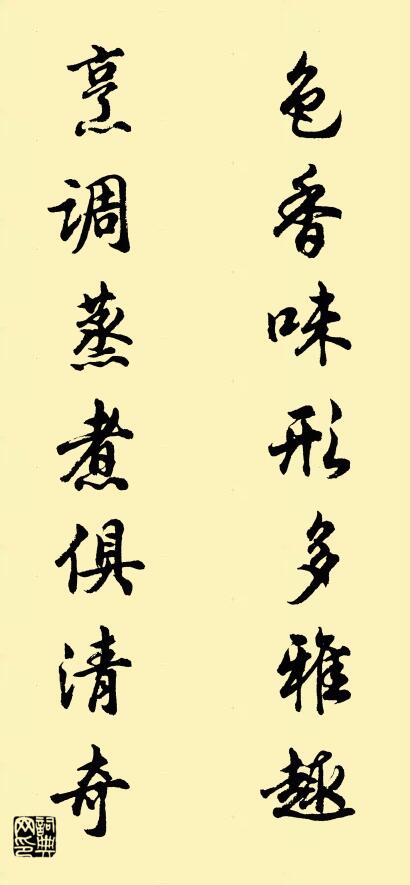 色香味形多雅趣
烹调蒸煮俱清奇
词典网印